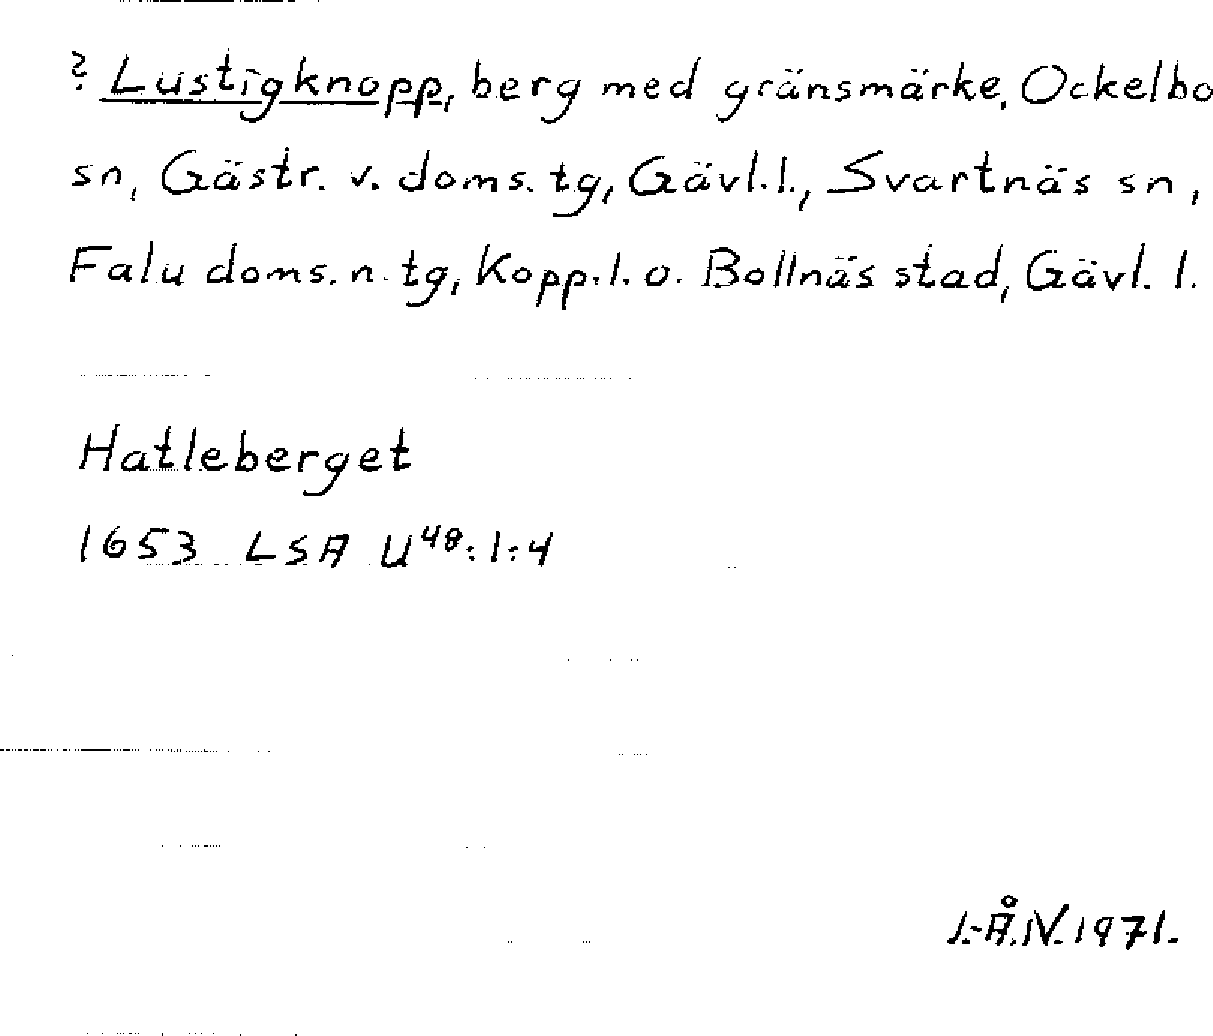 ? Lustigknopp, berg med gränsmärke, Ockelbo
sn, Gästr. v. doms. tg, Gävl. l., Svartnäs sn,
Falu doms. n. tg, Kopp. l. o. Bollnäs stad, Gävl. l.
Hatleberget
1653 LSA U⁴⁸:1:4
J.-Å.N. 1971.